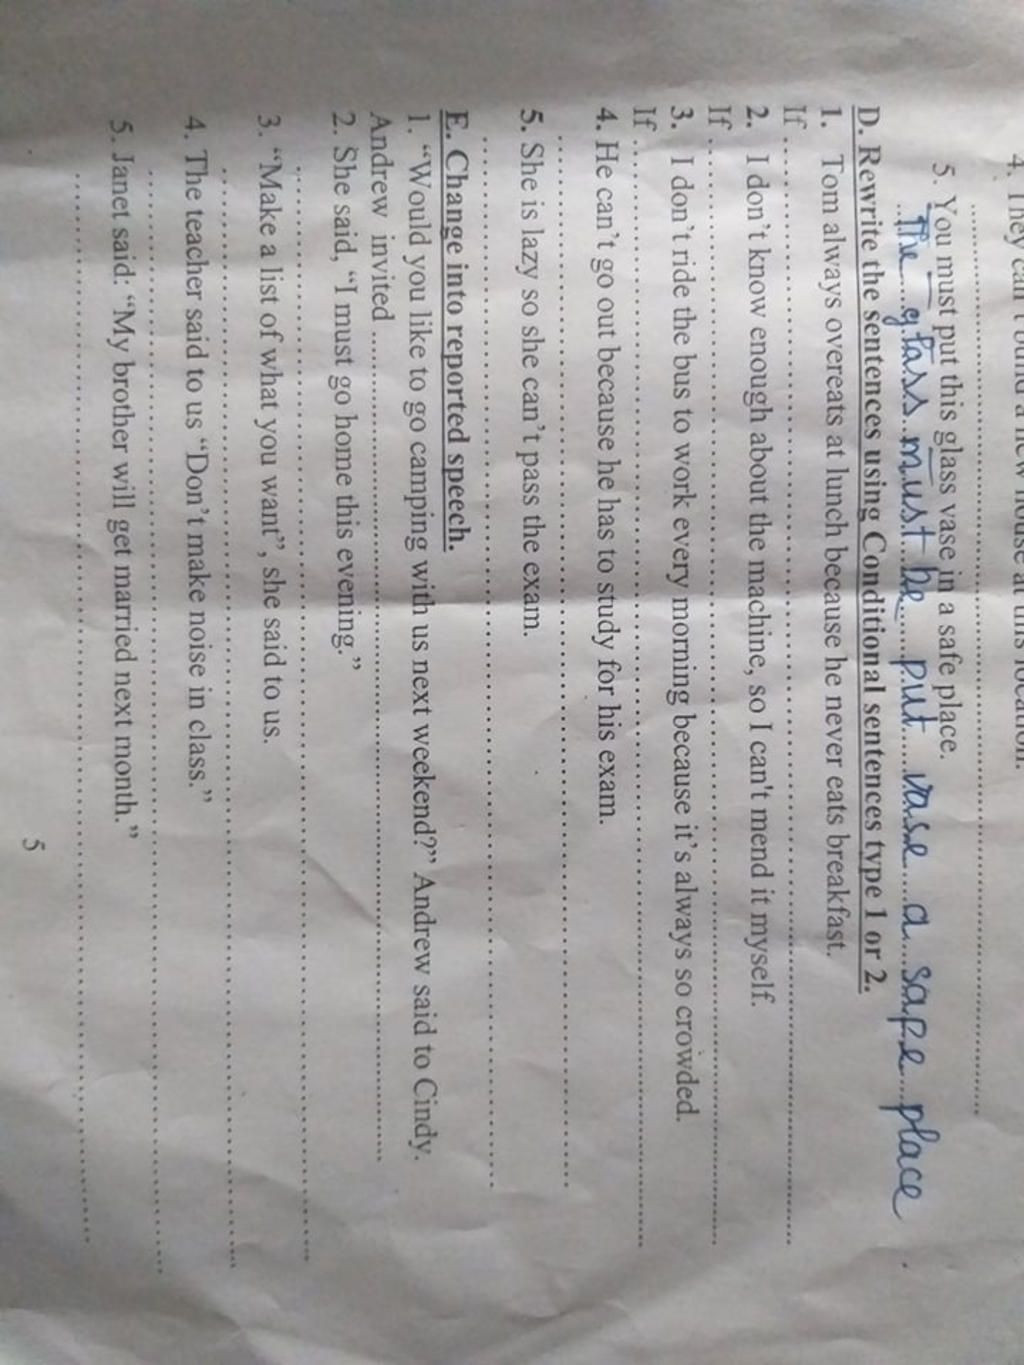 4. They can't build a new house at this location.
................................................................
5. You must put this glass vase in a safe place.
The glass must be put vase a sape place
D. Rewrite the sentences using Conditional sentences type 1 or 2.
1. Tom always overeats at lunch because he never eats breakfast.
If ................................................................
2. I don't know enough about the machine, so I can't mend it myself.
If ................................................................
3. I don't ride the bus to work every morning because it's always so crowded.
If ................................................................
4. He can't go out because he has to study for his exam.
................................................................
5. She is lazy so she can't pass the exam.
................................................................
E. Change into reported speech.
1. "Would you like to go camping with us next weekend?" Andrew said to Cindy.
Andrew invited ................................................................
2. She said, "I must go home this evening."
................................................................
3. "Make a list of what you want", she said to us.
................................................................
4. The teacher said to us "Don't make noise in class."
................................................................
5. Janet said: "My brother will get married next month."
................................................................
5